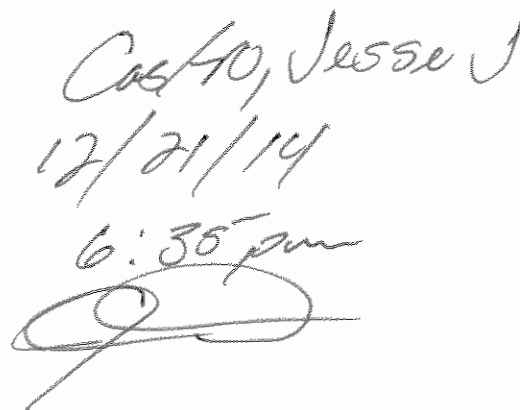 Castro, Jesse J
12/21/14
6:35 pm